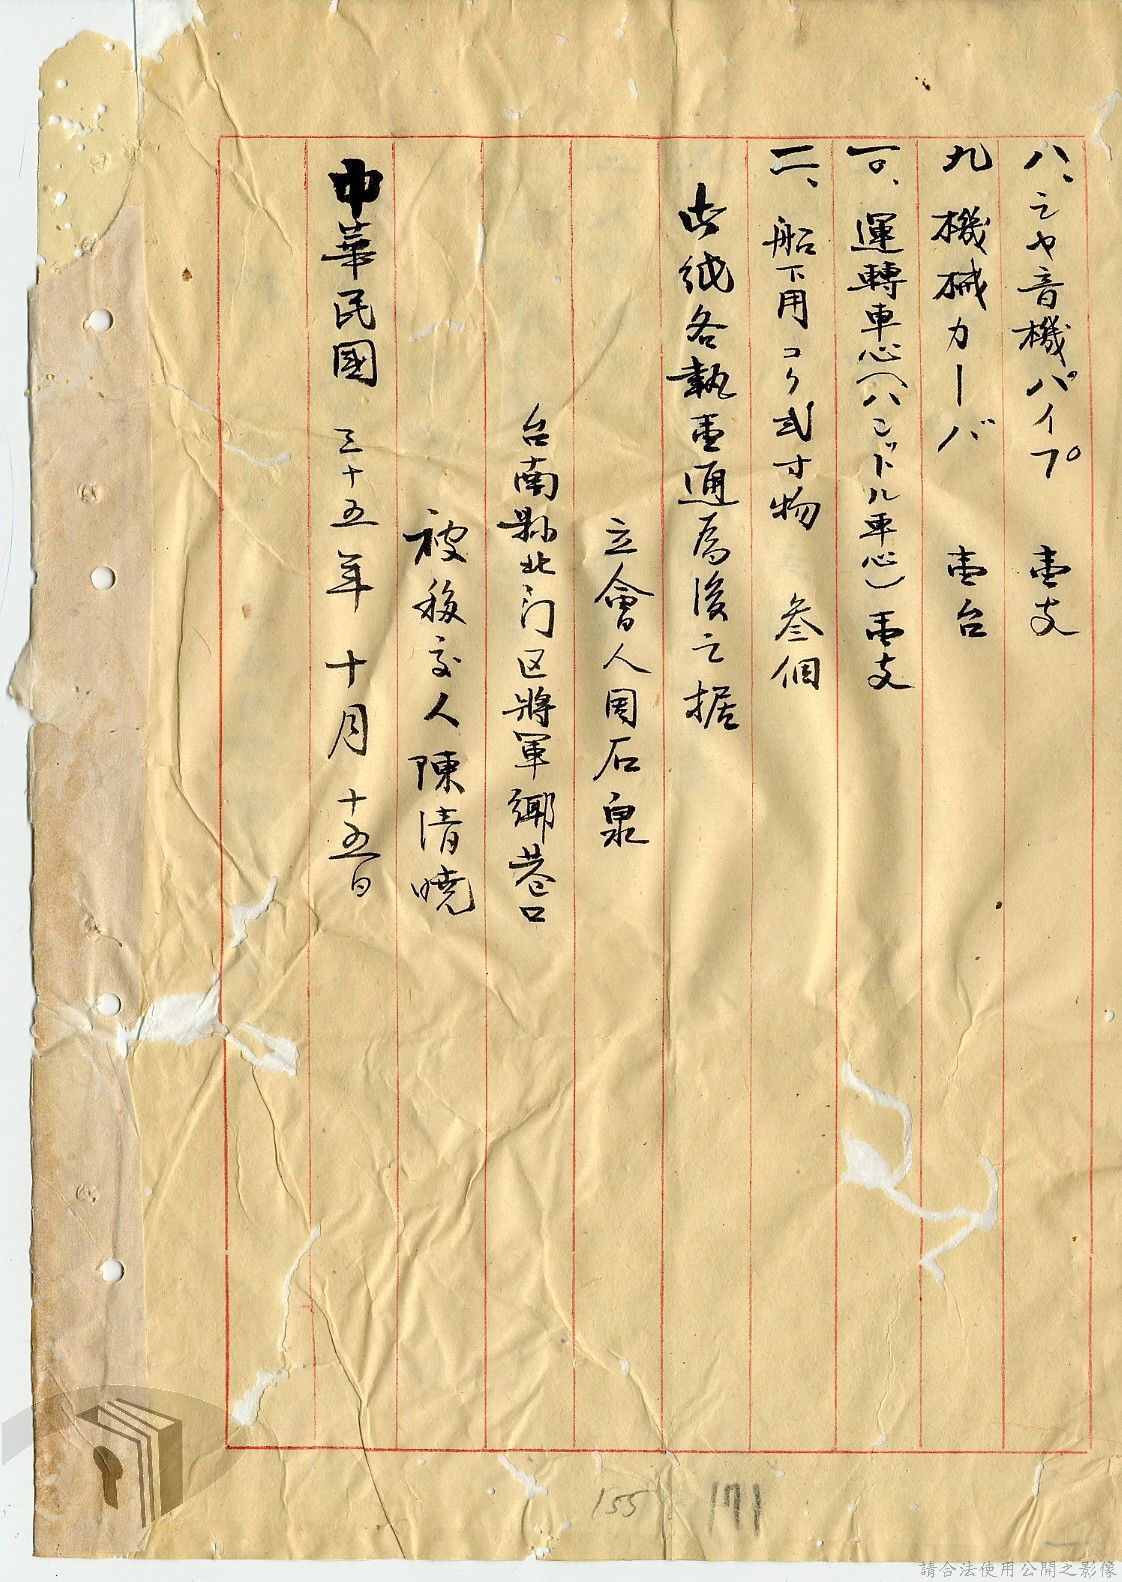 八、シヤ音機パイプ 壹支
九 機械カーバ 壹台
一〇、運轉車心(ハンドル車心)壹支
二、船下用コク弍寸物 叁個
此紙各執壹通為後之据
立會人周石泉
台南縣北门区將軍鄉巷口
被移交人陳清曉
中華民國 三十五年 十月 十五日
155 171
請合法使用公開之影像